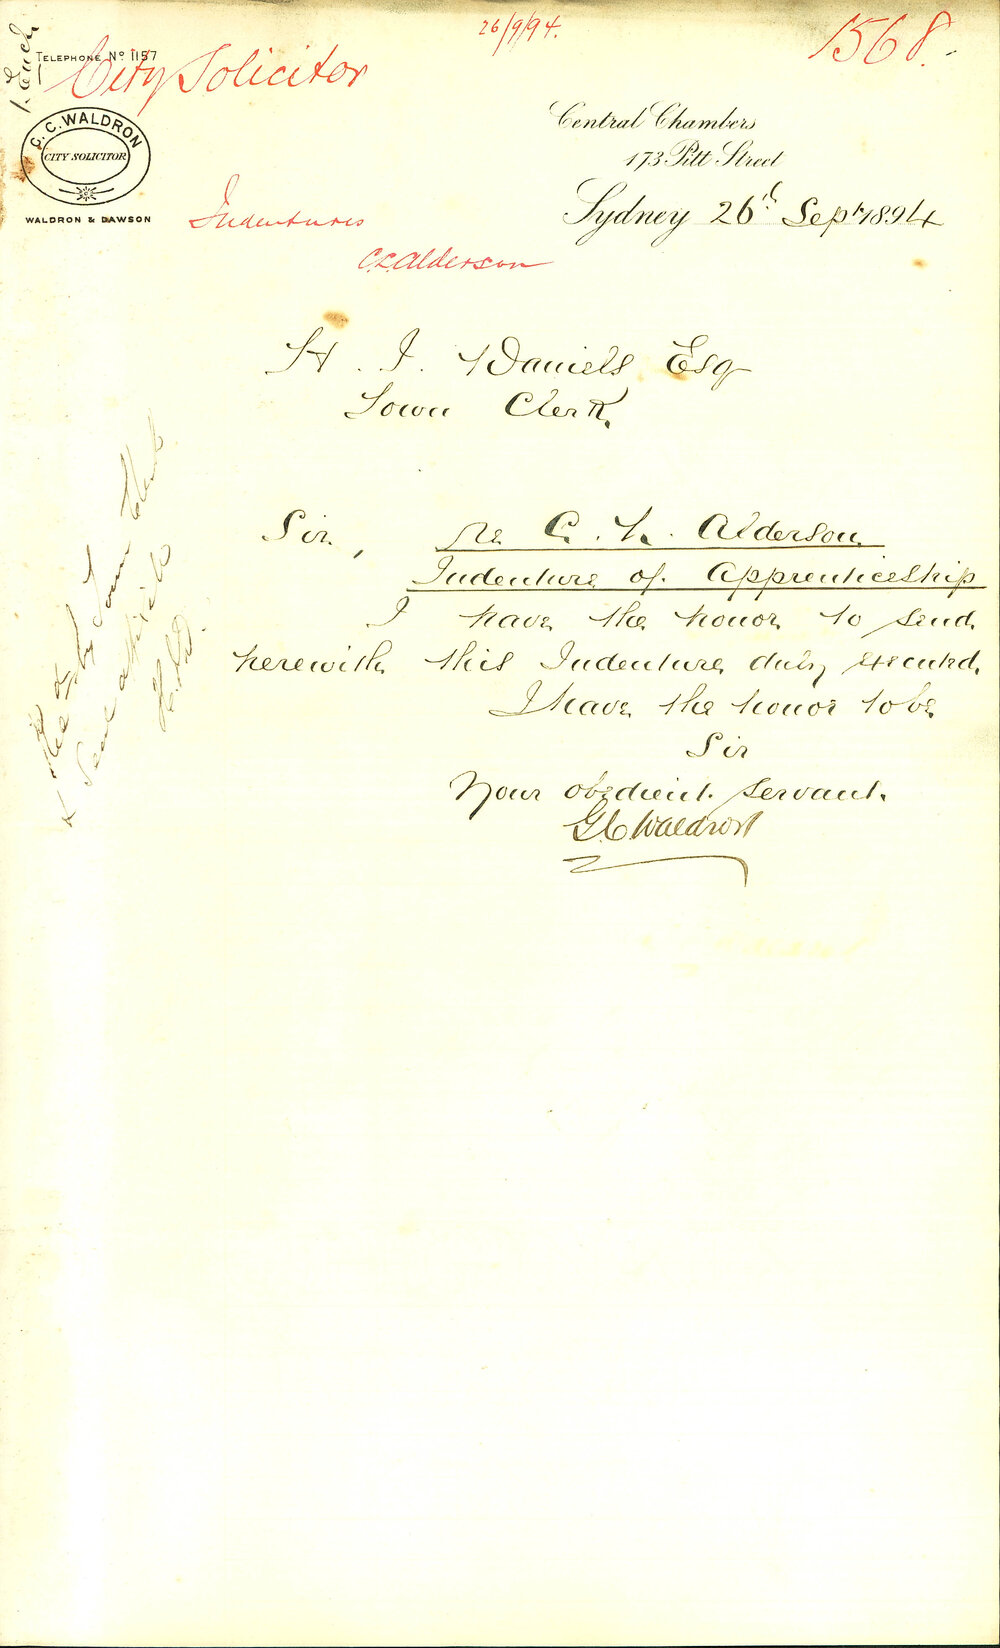 26/9/94.
1568.
1. Encl.
TELEPHONE No 1157
City Solicitor
G. C. WALDRON
CITY SOLICITOR
WALDRON & DAWSON
Central Chambers
173 Pitt Street
Sydney 26th Sept 1894
Indentures
C. L. Alderson
H. J. Daniels Esq
Town Clerk.
Sir, Re C. L. Alderson
Indenture of Apprenticeship
I have the honor to send
herewith this Indenture duly executed.
I have the honor to be
Sir
Your obedient servant.
G C Waldron
by Town Clerk
H.J.D.